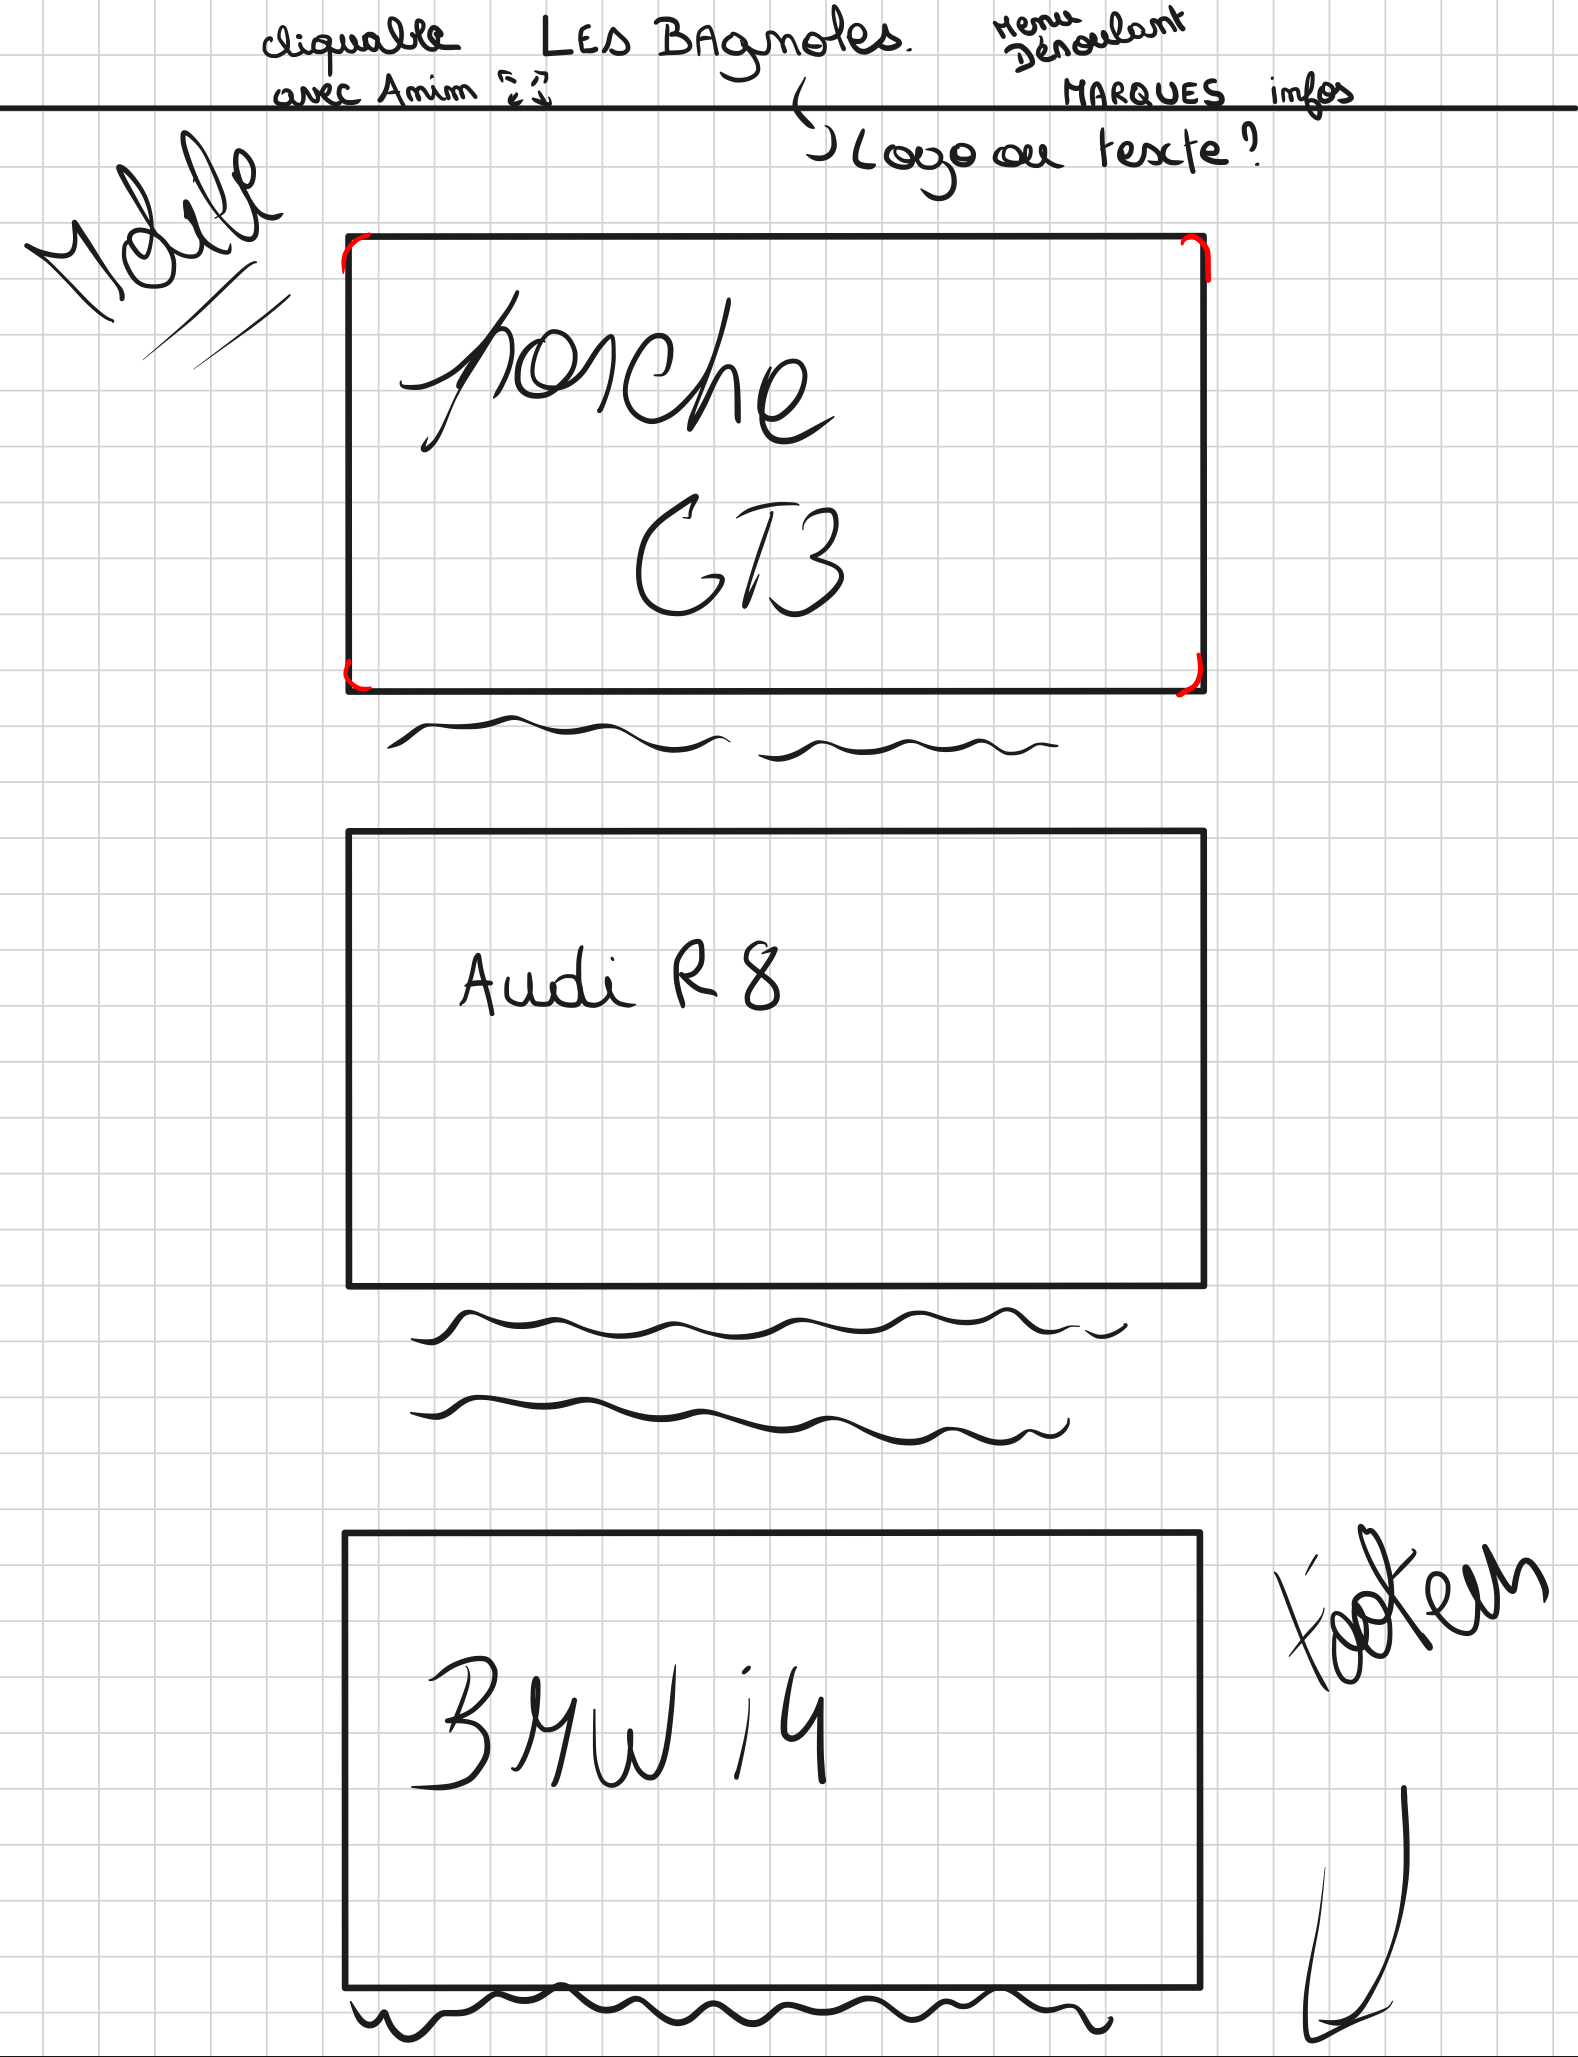 cliquable
avec Anim
LES BAgnoles.
Menu
Déroulant
MARQUES infos
Logo ou texte ?
porche
GT3
Audi R8
BMW i4